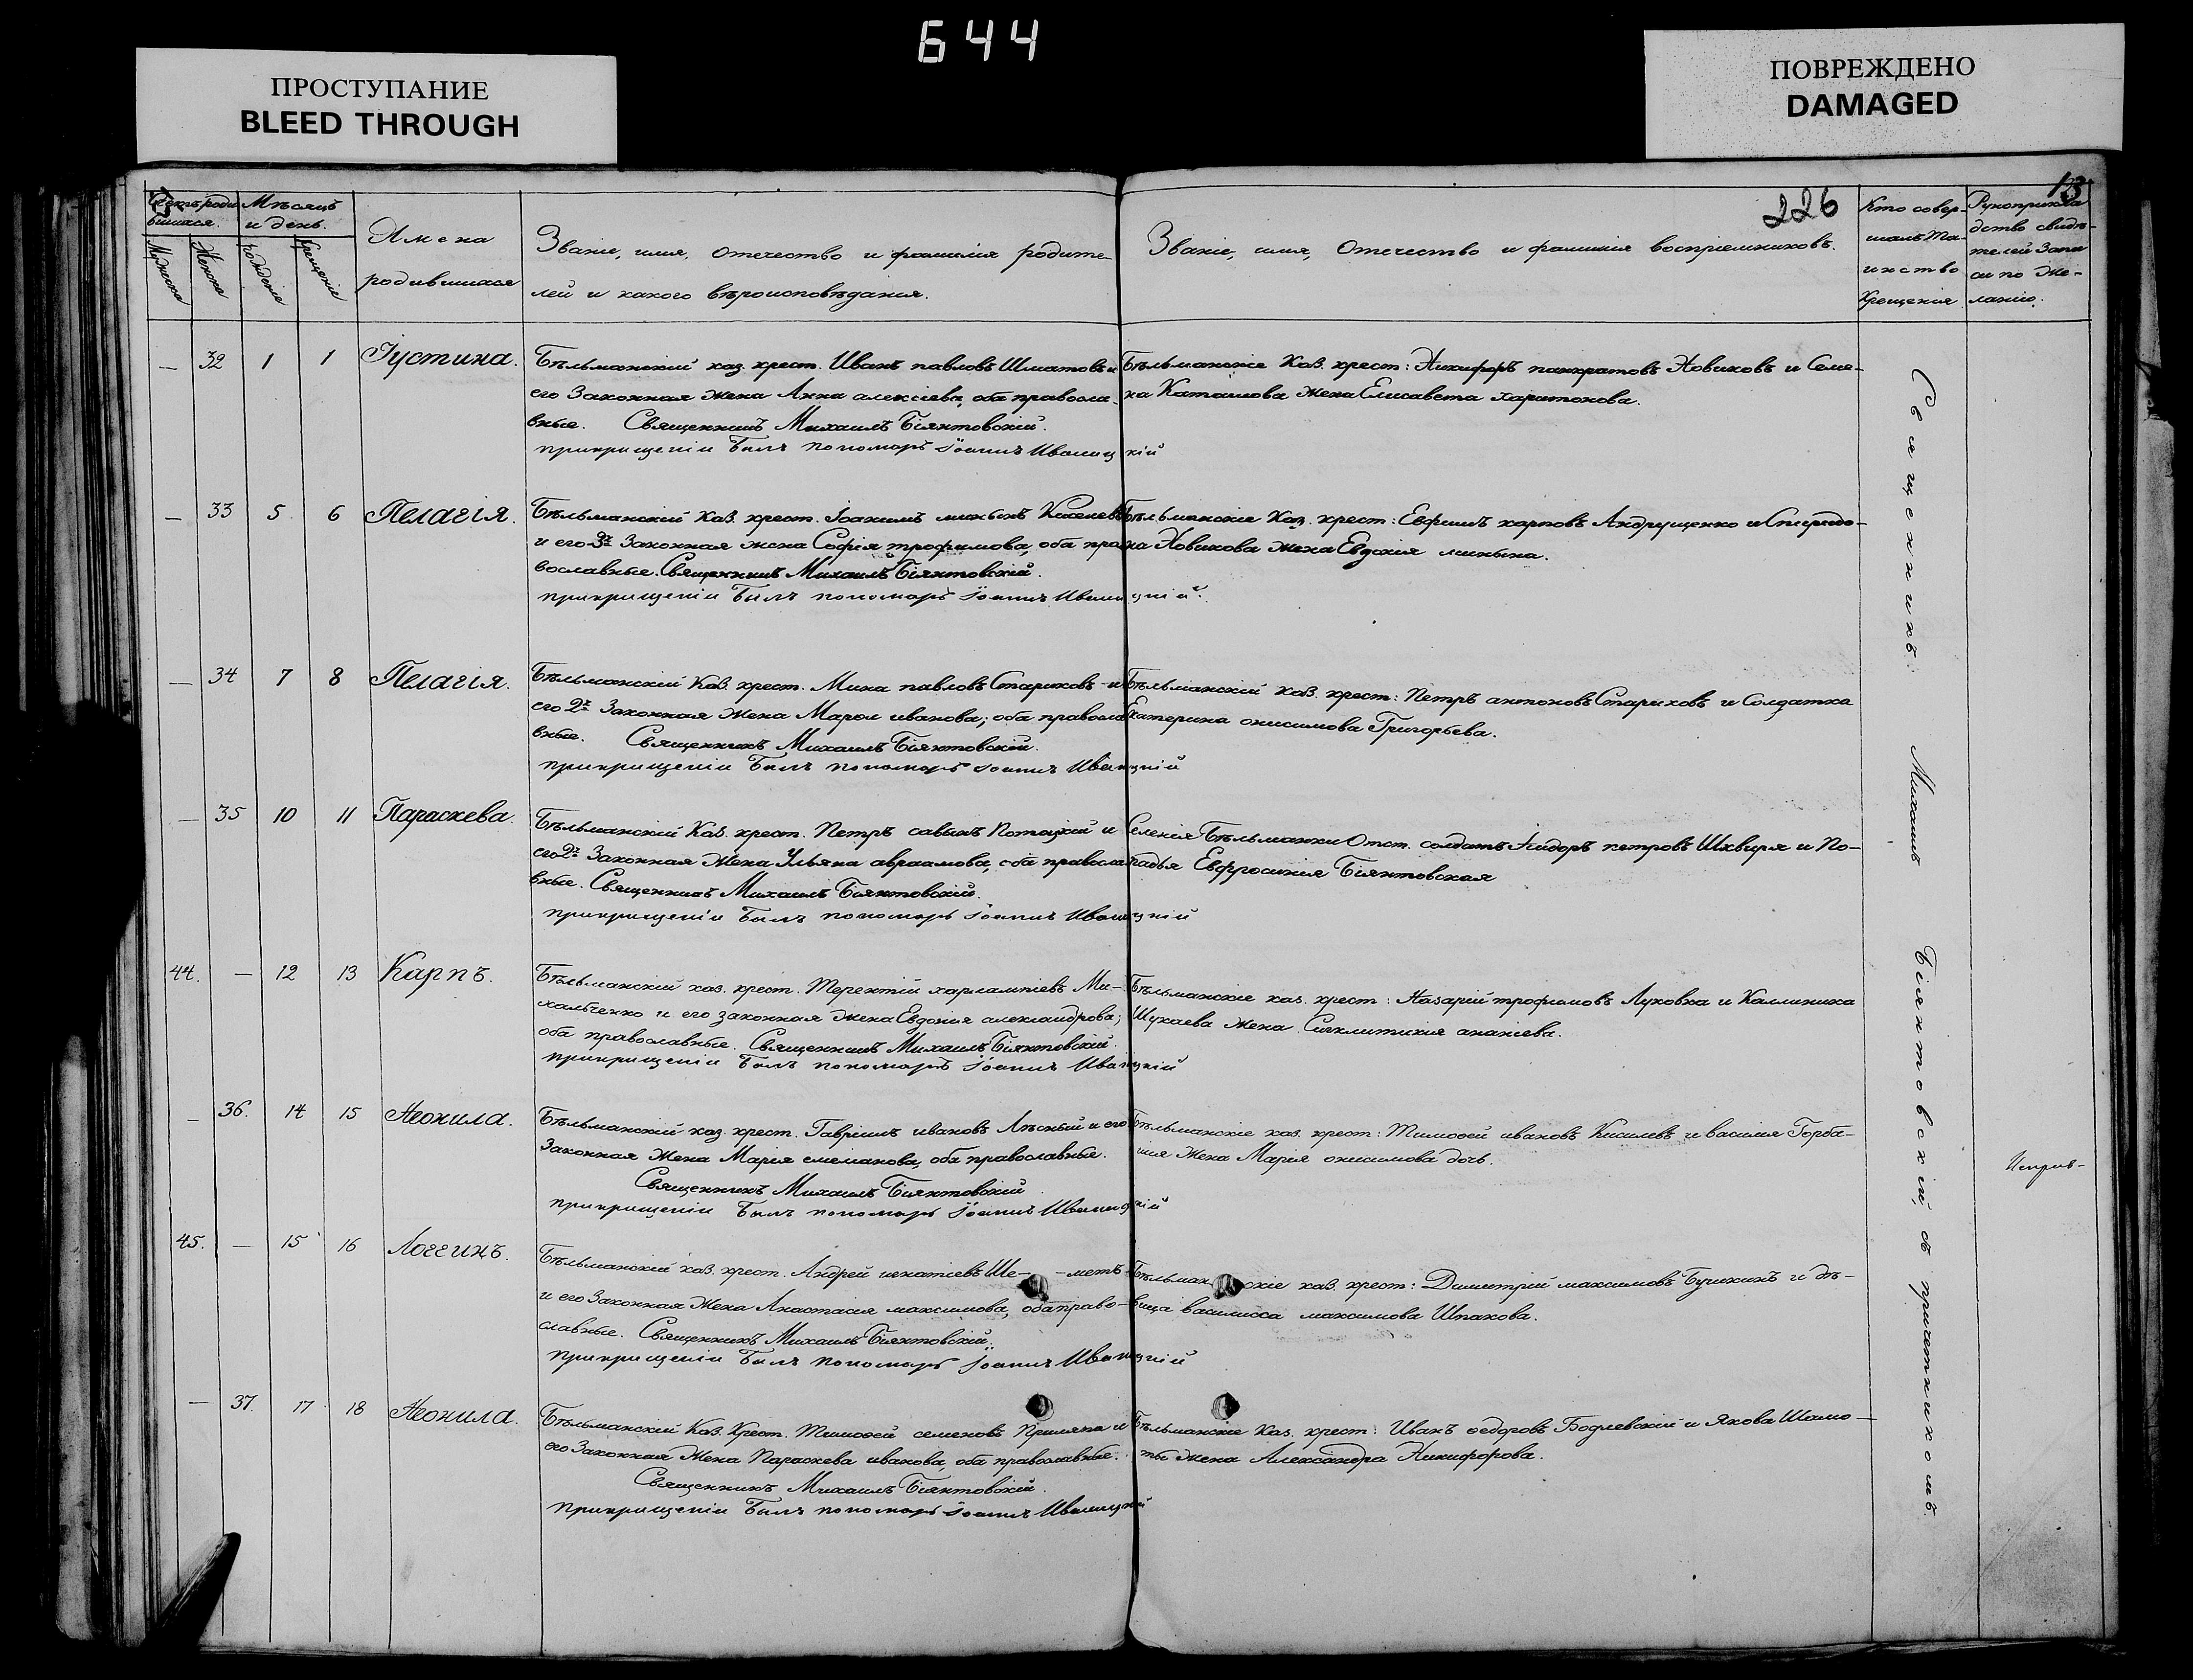 644
ПРОСТУПАНИЕ
BLEED THROUGH
ПОВРЕЖДЕНО
DAMAGED
13
226
Мѣсяцъ
и день.
Мужеска
Женска
рожденія
крещенія
Имена
родившихся
Званіе, имя, отечество и фамилія родите-
лей и какого вѣроисповѣданія.
Званіе, имя, Отечество и фамилія воспріемниковъ.
Кто совер-
шалъ Та-
инство
Крещенія
Рукоприкла
дство свидѣ-
телей Запи
си по Же-
ланію.
— 32 1 1 Іустина.
Бѣльманскій каз. крест. Иванъ павловъ Шматовъ и
его Законная жена Анна алексіева, оба правосла-
вные. Священникъ Михаилъ Біянтовскій.
прикрищеніи Былъ пономарь Іоаннъ Иваницкій
Бѣльманскіе Каз. крест: Никифоръ панкратовъ Новиковъ и Семе-
на Каташова жена Елисавета харитонова.
— 33 5 6 Пелагія.
Бѣльманскій Каз. крест. Іоакимъ минынъ Киселевъ
и его 3я Законная жена Софія трофимова, оба пра
вославные. Священникъ Михаилъ Біянтовскій.
прикрищеніи Былъ пономарь Іоаннъ Иваницкій.
Бѣльманскіе Каз. крест: Ефимъ карповъ Андрущенко и Спиридо-
на Новикова жена Евдокія минына.
— 34 7 8 Пелагія.
Бѣльманскій Каз. крест. Мина павловъ Стариковъ и
его 2я Законная жена Марѳа иванова; оба правосла
вные. Священникъ Михаилъ Біянтовскій.
прикрищеніи Былъ пономарь Іоаннъ Иваницкій
Бѣльманскій каз. крест: Петръ антоновъ Стариковъ и Солдатка
Екатерина онисимова Григорьева.
— 35 10 11 Параскева.
Бѣльманскій Каз. крест. Петръ савинъ Потаций и
его 2я Законная жена Ульяна авраамова, оба правосла
вные. Священникъ Михаилъ Біянтовскій.
прикрищеніи Былъ пономарь Іоаннъ Иваницкій
Селенія Бѣльманки Отст. солдатъ Исидоръ петровъ Шквиря и По-
падья Евфросинія Біянтовская
44. — 12 13 Карпъ.
Бѣльманскій каз. крест. Терентій харлампіевъ Ми-
хальченко и его законная жена Евдокія александрова;
оба православные. Священникъ Михаилъ Біянтовскій.
прикрищеніи Былъ пономарь Іоаннъ Иваницкій
Бѣльманскіе каз. крест: Назарій трофимовъ Луковка и Каллиника
Шукаева жена Синклитикія ананіева.
— 36. 14 15 Неонила.
Бѣльманскій каз. крест. Гавріилъ ивановъ Лѣсный и его
Законная жена Марія емеліанова, оба православные.
Священникъ Михаилъ Біянтовскій
прикрищеніи Былъ пономарь Іоаннъ Иваницкій
Бѣльманскіе каз. крест: Тимоѳей ивановъ Кисилевъ и василія Горба-
жена Марія онисимова дочь.
45. — 15 16 Логгинъ.
Бѣльманскій каз. крест. Андрей игнатіевъ Ше- -метъ
и его Законная жена Анастасія максимова, оба право-
славные. Священникъ Михаилъ Біянтовскій.
прикрищеніи Былъ пономарь Іоаннъ Иваницкій
Бѣльманскіе каз. крест: Димитрій максимовъ Бушкинъ и дѣ-
вица василисса максимова Шпакова.
— 37. 17 18 Неонила.
Бѣльманскій Каз. Крест. Тимоѳей семеновъ Примяка и
его Законная жена Параскева иванова, оба православные.
Священникъ Михаилъ Біянтовскій.
прикрищеніи Былъ пономарь Іоаннъ Иваницкій
Бѣльманскіе Каз. крест: Иванъ ѳедоровъ Бодлевскій и Якова Шамо-
ты жена Александра Никифорова.
Священникъ Михаилъ Біянтовскій, съ причетникомъ.